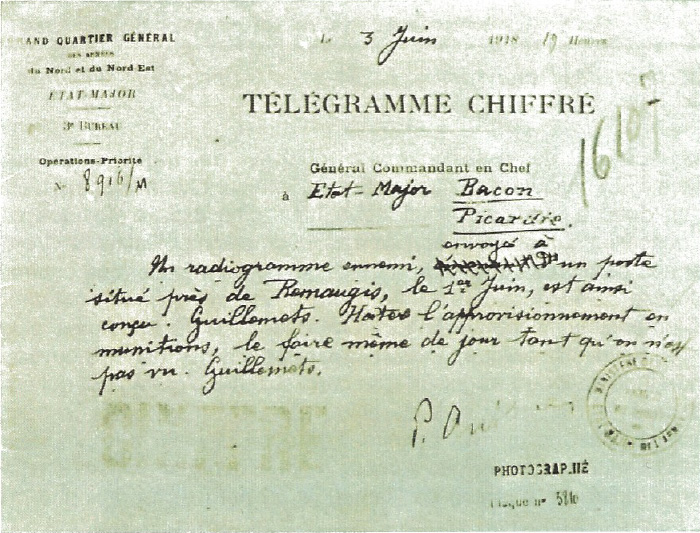 AND QUARTIER GÉNÉRAL
DES ARMÉES
du Nord et du Nord-Est
ÉTAT-MAJOR
3e BUREAU
Opérations-Priorité
N° 8916/M
Le 3 Juin 1918 19 Heures
TÉLÉGRAMME CHIFFRÉ
16107
Général Commandant en Chef
à Etat-Major Bacon
Picardie.
envoyé à
Un radiogramme ennemi, un poste
situé près de Remaugis, le 1er Juin, est ainsi
conçu. Guillemets. Hatez l'approvisionnement en
munitions, le faire même de jour tant qu'on n'est
pas vu. Guillemets.
PHOTOGRAPHIÉ